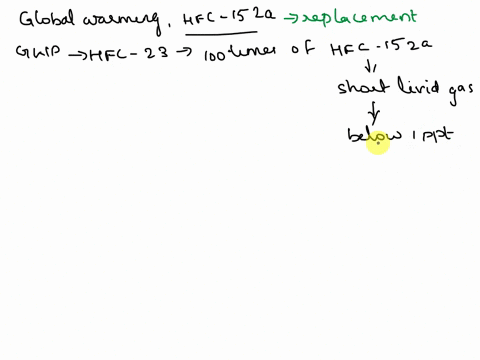 Global warming, HFC-152a → replacement
GWP → HFC-23 → 100 times of HFC-152a
short livid gas
below 1 ppt